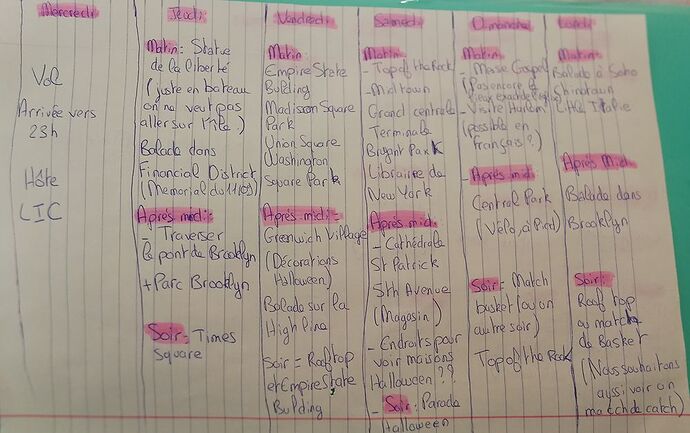 Mercredi
Vol
Arrivée vers
23h
Hôte
LIC
Jeudi:
Matin: Statue
de la liberté
(juste en bateau
on ne veut pas
aller sur l'île.)
Balade dans
Financial District
(Memorial du 11/09)
Après midi:
Traverser
le pont de Brooklyn
+ Parc Brooklyn
Soir: Times
Square
Vendredi:
Matin
Empire State
Building
Madisson Square
Park
Union Square
Washington
Square Park
Après-midi:
Greenwich Village
(Décorations
Halloween)
Balade sur la
High line
Soir = Rooftop
et Empire State
Building
Samedi:
Matin:
- Top of the Rock
- Midtown
Grand centrale
Terminale
Bryant Park
Librairie de
New York
Après midi:
- Cathédrale
St Patrick
5th Avenue
(Magasin)
- Endroits pour
voir maisons
Halloween ??
- Soir: Parade
Halloween
Dimanche:
Matin:
- Messe Gospel
(Pas encore le
lieux exact
- Visite Harlem
(possible en
français ?)
- Après midi:
Central Park
(Vélo, à Pied)
Soir = Match
basket (ou un
autre soir)
Top of the Rock
Lundi
Matin:
Balade à Soho
Chinatown
Little Italie
Après Midi:
Balade dans
Brooklyn
Soir:
Roof top
ou match
de Basket
(Nous souhaitons
aussi voir un
match de catch)